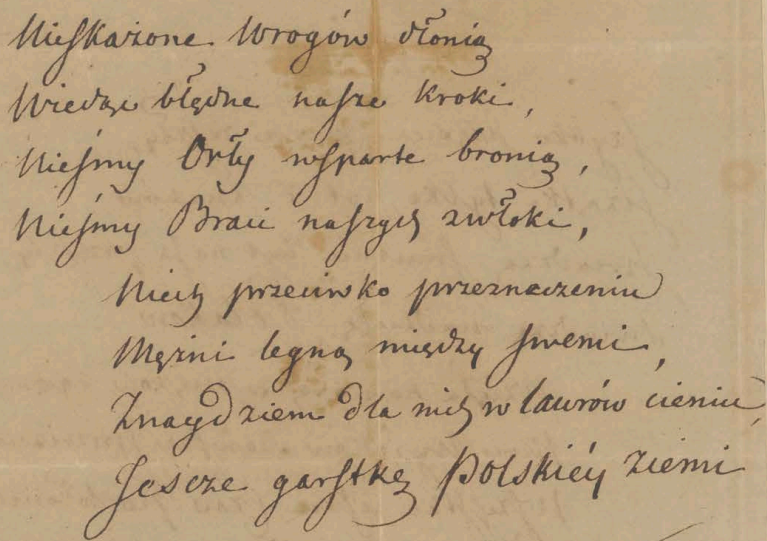 Nieskażone Wrogów dłonią
Wiedząc błędne nasze kroki,
Nieśmy Orły wsparte bronią,
Nieśmy Braci naszych zwłoki,
Niech przeciwko przeznaczeniu
Mężni legną między swemi,
Znaydziem dla nich w lawrów cieniu,
Jescze garstkę Polskiéy Ziemi